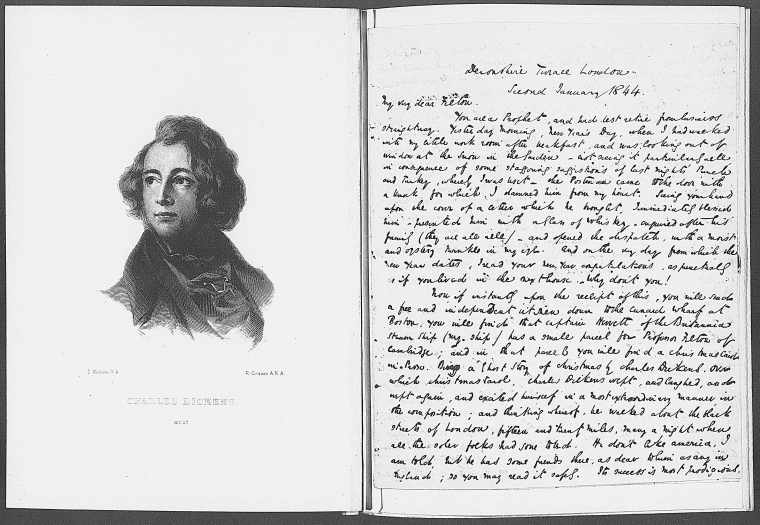 CHARLES DICKENS.
R. Graves A.R.A.
Devonshire Terrace London
Second January 1844.
My very dear Felton.
You are a Prophet, and had best retire from business
straightway. Yesterday morning, New Year's Day, when I had walked
into my little work room after breakfast, and was looking out of
window at the snow in the Garden – not seeing it particularly well
in consequence of some staggering suggestions of last night's Punch
and Turkey, whereby I was beset – the Postman came to the door with
a knock for which I damned him from my heart. Seeing your hand
upon the cover of a letter which he brought, I immediately blessed
him – presented him with a Glass of whiskey – enquired after his
family (they are all well) – and opened the dispatch, with a moist
and oystery twinkle in my eye. And on the very day from which the
new year dates, I read your New Year congratulations, as punctually
as if you lived in the next house. – Why don't you!
Now if instantly upon the receipt of this, you will send
a free and independent citizen down to the Cunard wharf at
Boston, you will find that Captain Hewett of the Britannia
steam ship (my ship) has a small parcel for Professor Felton of
Cambridge; and in that parcel you will find a Christmas Carol
in Prose. Being a Ghost Story of Christmas by Charles Dickens. Over
which Christmas Carol, Charles Dickens wept, and laughed, and
wept again, and excited himself in a most extraordinary manner in
the composition; and thinking whereof, he walked about the black
streets of London, fifteen and twenty miles, many a night when
all the sober folks had gone to bed. He don't like America, I
am told, but he has some friends there, as dear to him as any in
England; so you may read it safely. Its success is most prodigious.